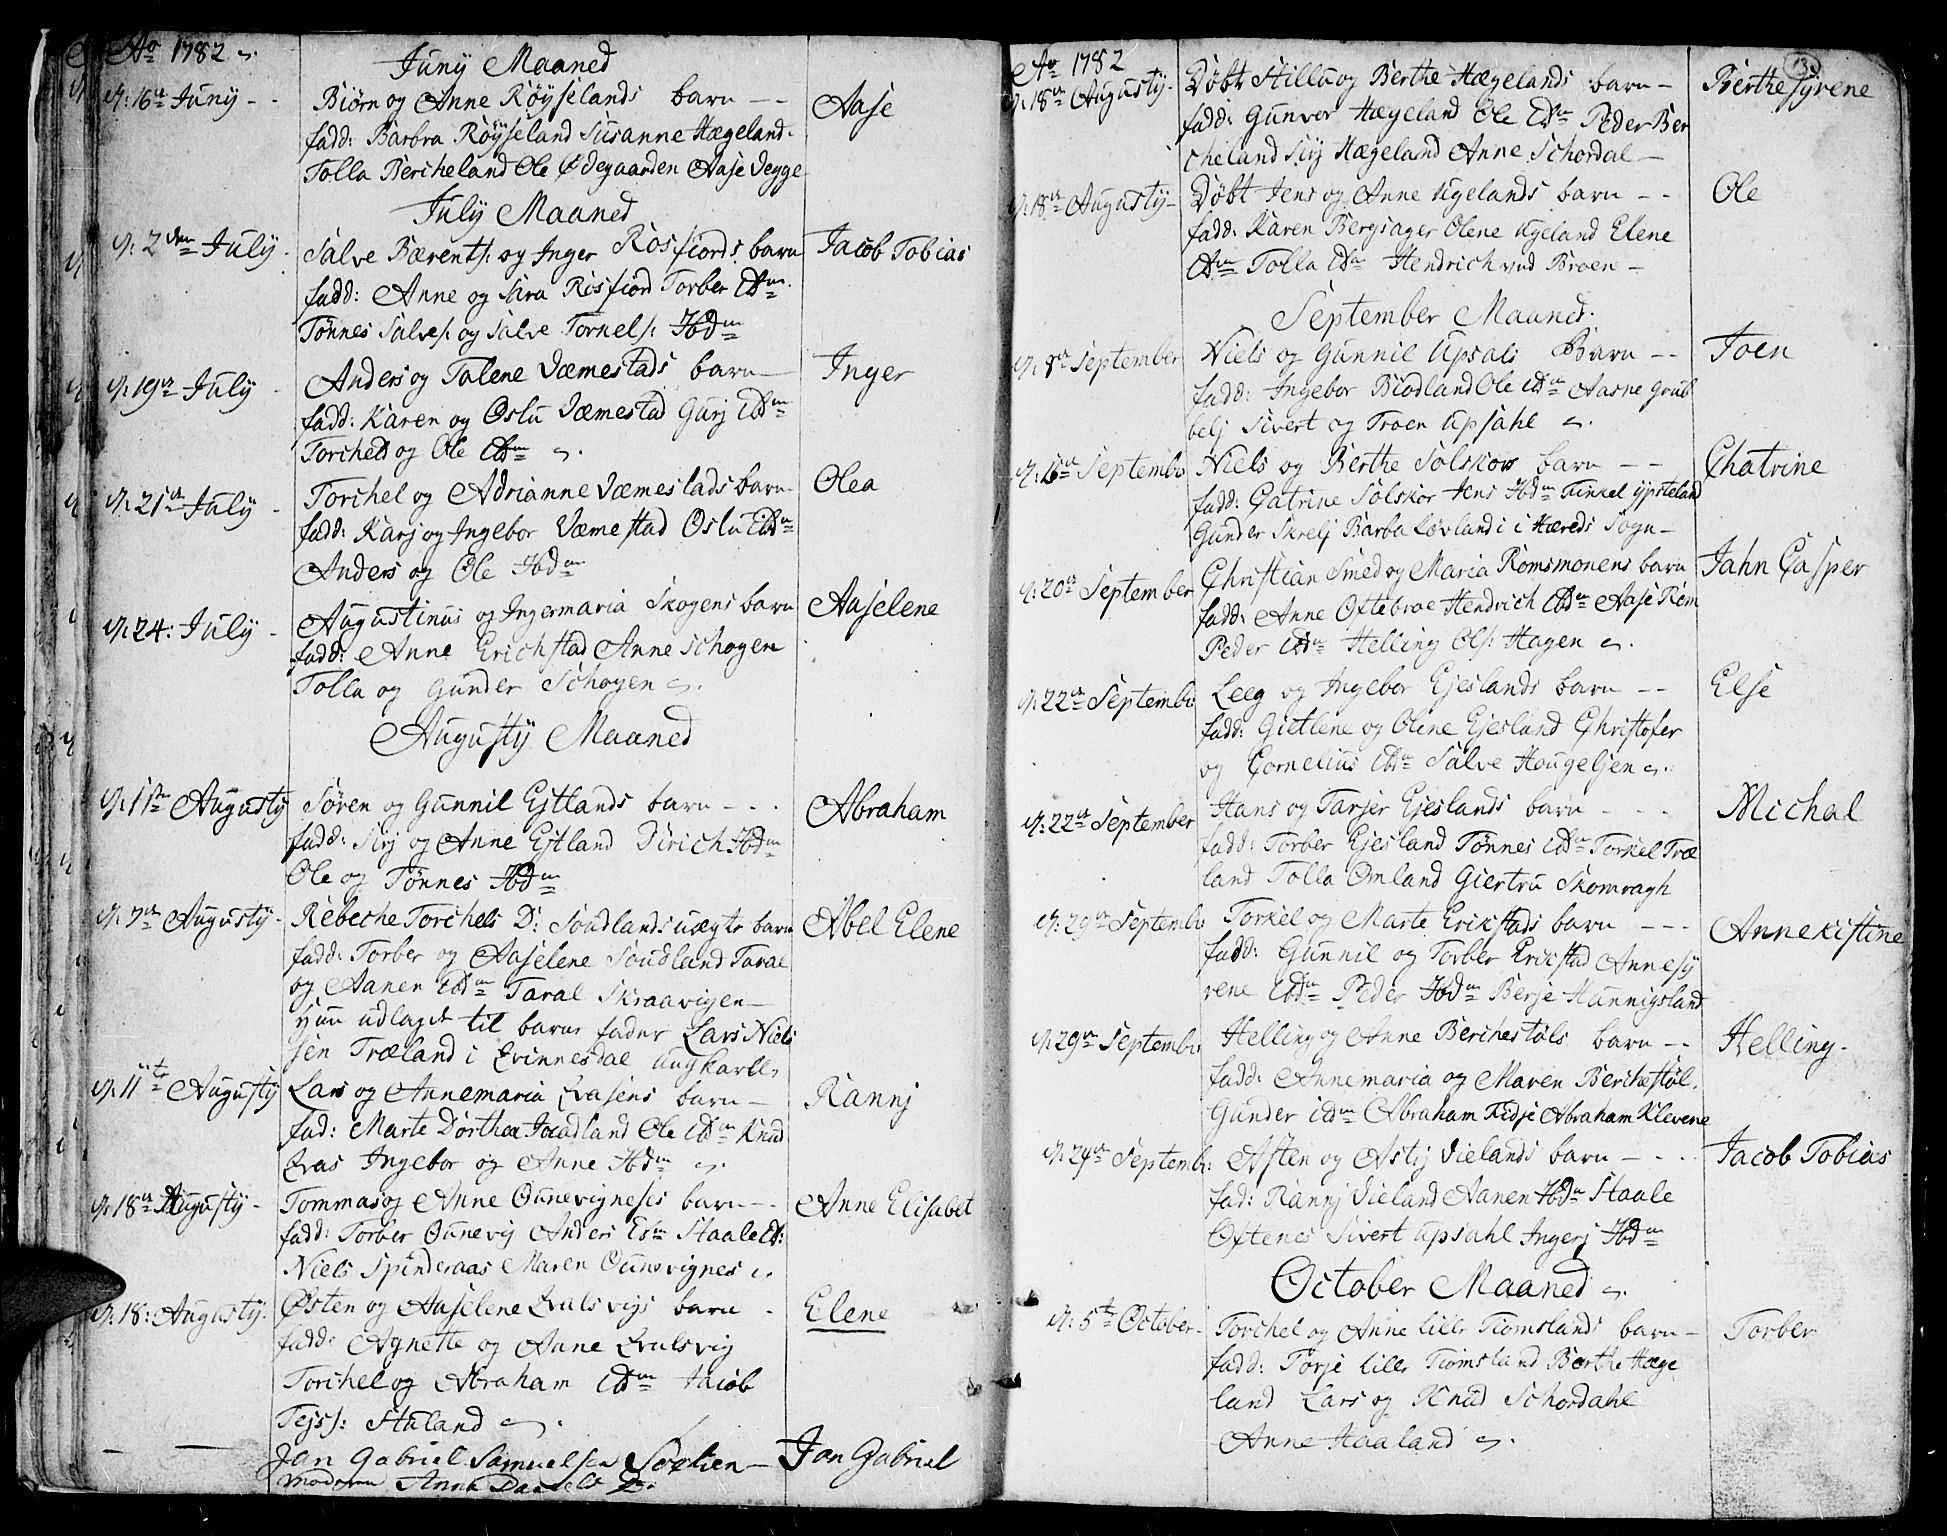 Ao 1782
Juny Maaned
d: 16de Juny - - Biørn og Anne Røyselands barn - - Aase
fadd: Barbra Røyseland Susanne Hægeland
Tolla Bercheland Ole Ødegaarden Aase Vegge
July Maaned
d: 2den July - Salve Bærents: og Inger Rosfiords barn Jacob Tobias
fadd: Anne og Sira Risfiord Torber Ibdm
Tønnes Salves: og Salve Tornels: Ibdm
d: 19de July - Anders og Talene Væmestads barn - Inger
fadd: Karen og Oslu Væmestad Gurj Ibdm
Torched og Ole Ibdm
d: 21de July - Torchel og Adrianne Væmestads barn - Olea
fadd: Karj og Ingebor Væmestad Oslu Ibdm
Anders og Ole Ibdm
d: 24: July - Augustinus og Ingermaria Skogens barn Aaselene
fadd: Anne Erichstad Anne Schogen
Tolla og Gunder Schogen
Augusty Maaned
d: 1ste Augusty Søren og Gunnil Ejtlands barn - - - Abraham
fadd: Sirj og Anne Ejtland Dirich Ibdm
Ole og Tønnes Ibdm
d: 7de Augusty - Rebeche Torchels D: Soudlands uægte barn Abel Elene
fadd: Torber og Aaselene Soudland Taral
og Aanen Ibdm Taral Skraavigen -
Hun udlagde til barns fader Lars Niel
sen Træland i Qvinnesdal ungkarl
d: 11te Augusty Lars og Annemaria Qvasens barn - Rannj
fad: Marte Dorthea Jaadland Ole Ibdm Knud
Qvas Ingebor og Anne Ibdm
d: 18de Augusty - Tommas og Anne Ounevigneses barn - - Anne Elisabet
fadd: Torber Ounevig Anders Ibm Staale Ibd:
Niels Spinderaas Maren Ounevignes
d: 18: Augusty - Østen og Aaselene Qvalsvigs barn - Elene
fadd: Agnette og Anne Qvalsvig
Torchel og Abraham Ibdm Jacob
Tejss: Stuland
Jan Gabriel Samuelsen - Jan Gabriel
Moderen Anna Daniels D:
Ao 1782
d: 18de Augusty - Døbt Stillu og Berthe Hægelands barn - Berthe Syrene
fadd: Gunvor Hægeland Ole Ibdm Peder Ber
cheland Sirj Hægeland Anne Schordal -
d: 18de Augusty - Døbt Jens og Anne Ugelands barn - - Ole
fadd: Karen Bergsager Olene Ugeland Elene
Ibdm Tolla Ibdm Hendrich ved Broen -
September Maaned
d: 8de September Niels og Gunnil Upsals Barn - - Joen
fadd: Ingebor Biodland Ole Ibdm Aasne Grub
belj Sivert og Troen Upsahl
d: 15de September Niels og Berthe Solskors barn - - Chatrine
fadd: Catrine Solskor Jens Ibdm Finkel Ypsteland
Gunder Skrelj Barba Løvland i i Hæreds Sogn -
d: 20de September Christian Smed og Maria Romsmonens barn Jahn Casper
fadd: Anne Oftebroe Hendrich Ibdm Aase Rom
Peder Ibdm Helling Ols: Hagen
d: 22de September Leeg og Ingebor Ejeslands barn - - Else
fadd: Gietlene og Oline Ejesland Christofer
og Cornelius Ibdm Salve Hougeljen
d: 22de September Hans og Tarjer Ejeslands barn - - Michal
fadd: Torber Ejesland Tønnes Ibdm Torkel Træ
land Tolla Omland Giertru Skomragh
d: 29de September Torkel og Marte Erikstads barn - - - Annekistine
fadd: Gunnil og Torber Erikstad Annesy
rene Ibdm Peder Ibdm Berje Hunnigsland
d: 29de September Helling og Anne Berchestøls barn - - Helling -
fadd: Annemaria og Maren Berchestøl
Gunder Ibdm Abraham Kidje Abraham Klevene
d: 29de Septemb: Asten og Astrj Vielands barn - - - Jacob Tobias
fad: Rannj Vieland Aanen Ibdm Staale
Oftenes Sivert Upsahl Ingerj Ibdm
October Maaned
d: 5te October - Torchel og Anne lille Tiomslands barn - Torber
fadd: Torje lille Tiomsland Berthe Hæge
land Lars og Knud Schordahl
Anne Haaland